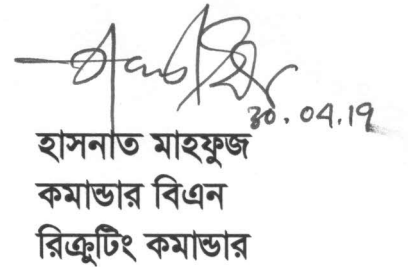 30.04.19
হাসনাত মাহফুজ
কমান্ডার বিএন
রিক্রুটিং কমান্ডার